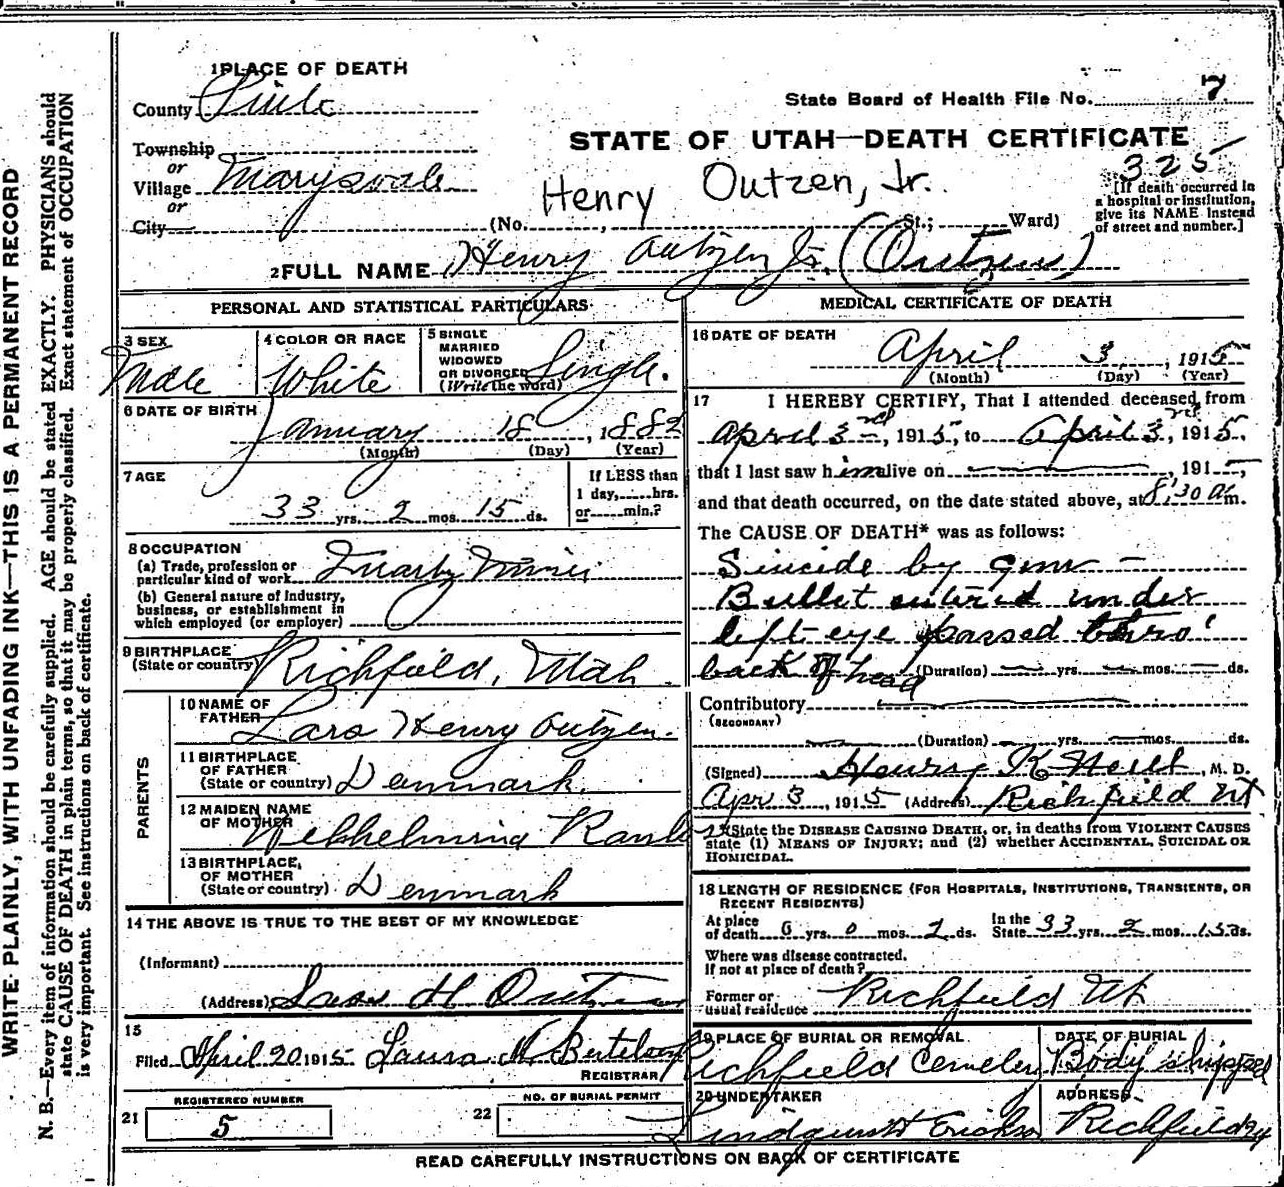 WRITE PLAINLY, WITH UNFADING INK—THIS IS A PERMANENT RECORD
N. B.—Every item of information should be carefully supplied. AGE should be stated EXACTLY. PHYSICIANS should
state CAUSE OF DEATH in plain terms, so that it may be properly classified. Exact statement of OCCUPATION
is very important. See instructions on back of certificate.
1 PLACE OF DEATH
County Piute
State Board of Health File No. 7
STATE OF UTAH—DEATH CERTIFICATE
325
Township
or
Village Marysvale
or
City
Henry Outzen, Jr.
(No. , St.; Ward)
[If death occurred in
a hospital or institution,
give its NAME instead
of street and number.]
2 FULL NAME Henry Outzen Jr. (Outzen)
PERSONAL AND STATISTICAL PARTICULARS
3 SEX
Male
4 COLOR OR RACE
White
5 SINGLE
MARRIED
WIDOWED
OR DIVORCED
(Write the word)
Single.
6 DATE OF BIRTH
January 18, 1882
(Month) (Day) (Year)
7 AGE
33 yrs. 2 mos. 15 ds.
If LESS than
1 day, hrs.
or min.?
8 OCCUPATION
(a) Trade, profession or
particular kind of work Miner
(b) General nature of industry,
business, or establishment in
which employed (or employer)
9 BIRTHPLACE
(State or country) Richfield, Utah
PARENTS
10 NAME OF
FATHER Lars Henry Outzen.
11 BIRTHPLACE
OF FATHER
(State or country) Denmark.
12 MAIDEN NAME
OF MOTHER
13 BIRTHPLACE,
OF MOTHER
(State or country) Denmark
14 THE ABOVE IS TRUE TO THE BEST OF MY KNOWLEDGE
(Informant)
(Address) Lars H Outzen
15
Filed April 20 1915 Laura
REGISTRAR
REGISTERED NUMBER
21 5
NO. OF BURIAL PERMIT
22
MEDICAL CERTIFICATE OF DEATH
16 DATE OF DEATH
April 3, 1915
(Month) (Day) (Year)
17 I HEREBY CERTIFY, That I attended deceased from
April 3rd, 1915, to April 3rd, 1915.
that I last saw him alive on , 1915,
and that death occurred, on the date stated above, at 8:30 a m.
The CAUSE OF DEATH* was as follows:
Suicide by gun -
Bullet entered under
left eye passed thro'
back of head (Duration) yrs. mos. ds.
Contributory
(SECONDARY)
(Duration) yrs. mos. ds.
(Signed) Henry K Neill, M. D.
Apr 3, 1915 (Address) Richfield Ut
*State the DISEASE CAUSING DEATH, or, in deaths from VIOLENT CAUSES
state (1) MEANS OF INJURY; and (2) whether ACCIDENTAL, SUICIDAL OR
HOMICIDAL.
18 LENGTH OF RESIDENCE (FOR HOSPITALS, INSTITUTIONS, TRANSIENTS, OR
RECENT RESIDENTS)
At place
of death 0 yrs. 0 mos. 2 ds. In the
State 33 yrs. 2 mos. 15 ds.
Where was disease contracted.
If not at place of death?
Former or
usual residence Richfield Ut
19 PLACE OF BURIAL OR REMOVAL
Richfield Cemetery
DATE OF BURIAL
Body shipped
20 UNDERTAKER
ADDRESS
Richfield
READ CAREFULLY INSTRUCTIONS ON BACK OF CERTIFICATE